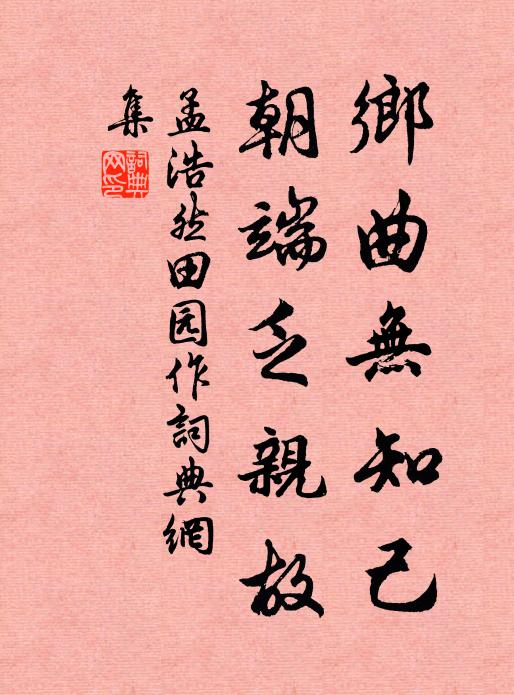 鄉曲無知己
朝端乏親故
孟浩然田园作詞典網
集
詞典
网印